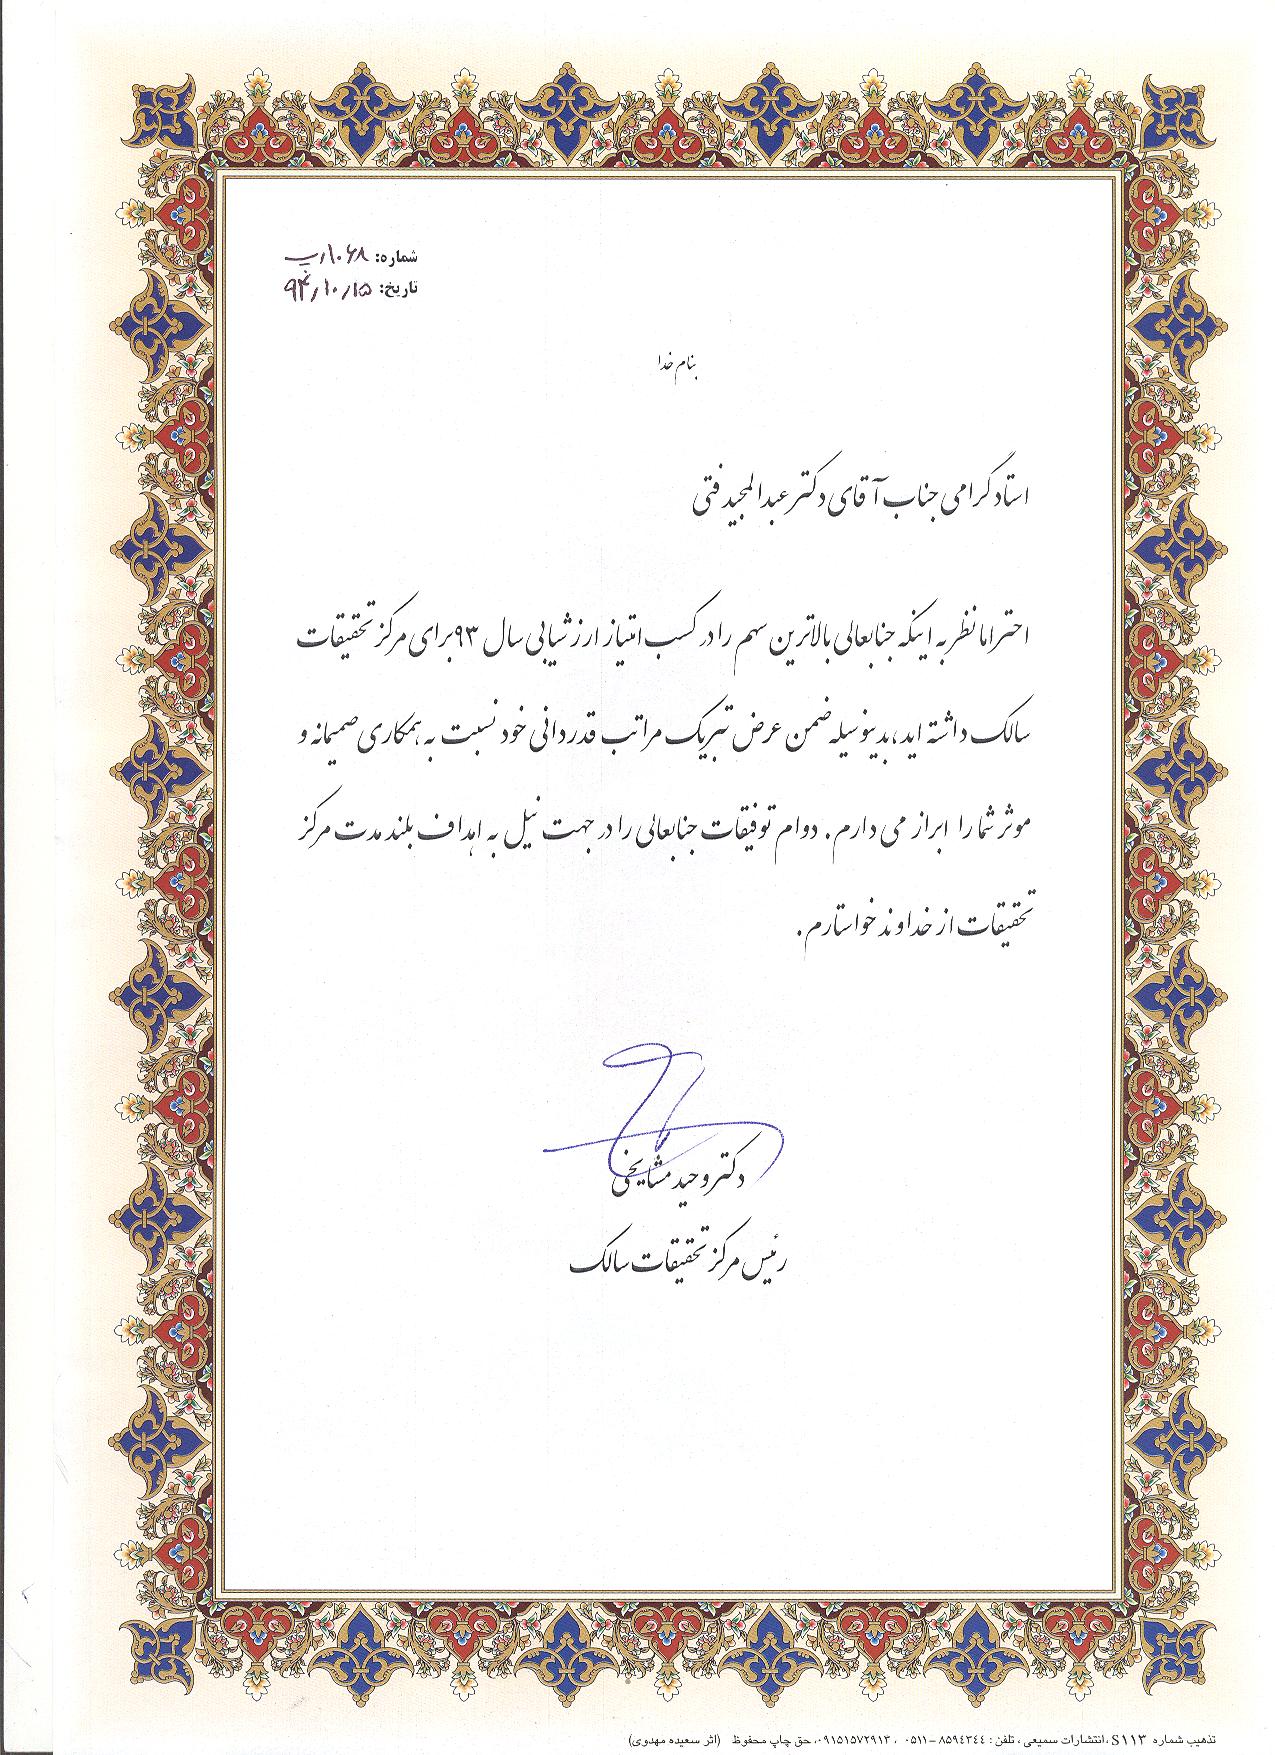 شماره: ۱۰۶۸/پ
تاریخ: ۹۴/۱۰/۱۵
بنام خدا
استاد گرامی جناب آقای دکتر عبدالمجید فتی
احتراما نظر به اینکه جنابعالی بالاترین سهم را در کسب امتیاز ارزشیابی سال ۹۳ برای مرکز تحقیقات
سالک داشته اید، بدینوسیله ضمن عرض تبریک مراتب قدردانی خود نسبت به همکاری صمیمانه و
موثر شما را ابراز می دارم. دوام توفیقات جنابعالی را در جهت نیل به اهداف بلند مدت مرکز
تحقیقات از خداوند خواستارم.
دکتر وحید مشایخی
رئیس مرکز تحقیقات سالک
تذهیب شماره S۱۱۳ ،انتشارات سمیعی ، تلفن : ۸۵۹۴۳۴۴-۰۵۱۱ ، ۰۹۱۵۱۵۷۲۹۱۳، حق چاپ محفوظ (اثر سعیده مهدوی)